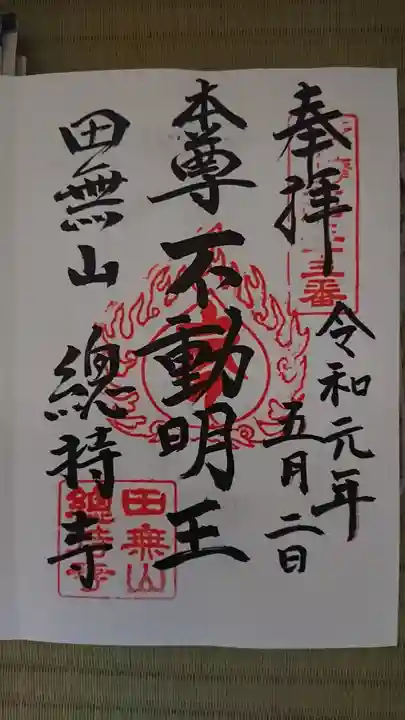 奉拝
令和元年
五月二日
本尊 不動明王
田無山 總持寺
田無山
總持寺